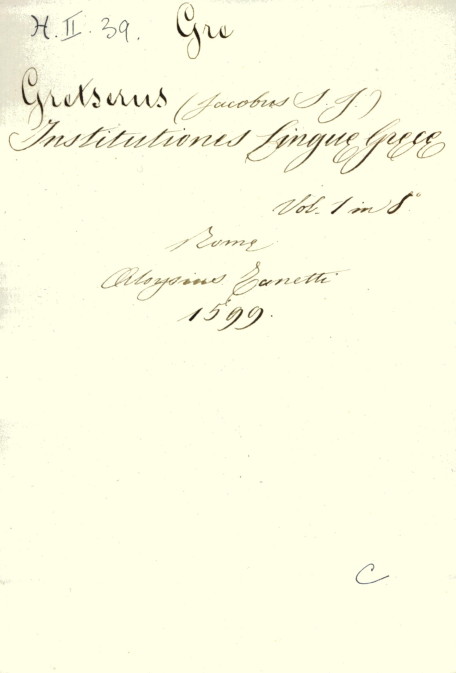 H. II. 39. Gre
Gretserus (Jacobus S. J.)
Institutiones Linguę Gręcę
Vol. 1 in 8°
Romę
Aloysius Zanetti
1599.
C